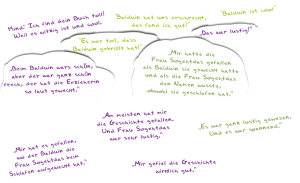 Mona: "Ich find dein Buch toll!
Weil es witzig ist und cool.
"Balduin hat was erschreckt,
das fand ich gut!"
"Balduin ist cool"
"Das war lustig!"
"Es war toll, dass
Balduin gebrüllt hat!"
"Beim Balduin wars schön,
aber der war ganz schön
frech, der hat die Erzieherin
so laut geweckt."
"Mir hatte die
Frau Sorgextdas gefallen
als Balduin sie geweckt hatte
und als die Frau Sorgextdas
den Namen wusste,
obwohl sie geschlafen hat."
"Am meisten hat mir
die Geschichte gefallen.
Und Frau Sorgextdas
war sehr lustig."
"Es war ganz lustig gewesen,
Und es war spannend."
"Mir hat es gefallen,
wo der Balduin die
Frau Sorgextdas beim
Schlafen aufgeweckt hat."
"Mir gefiel die Geschichte
wirklich gut."